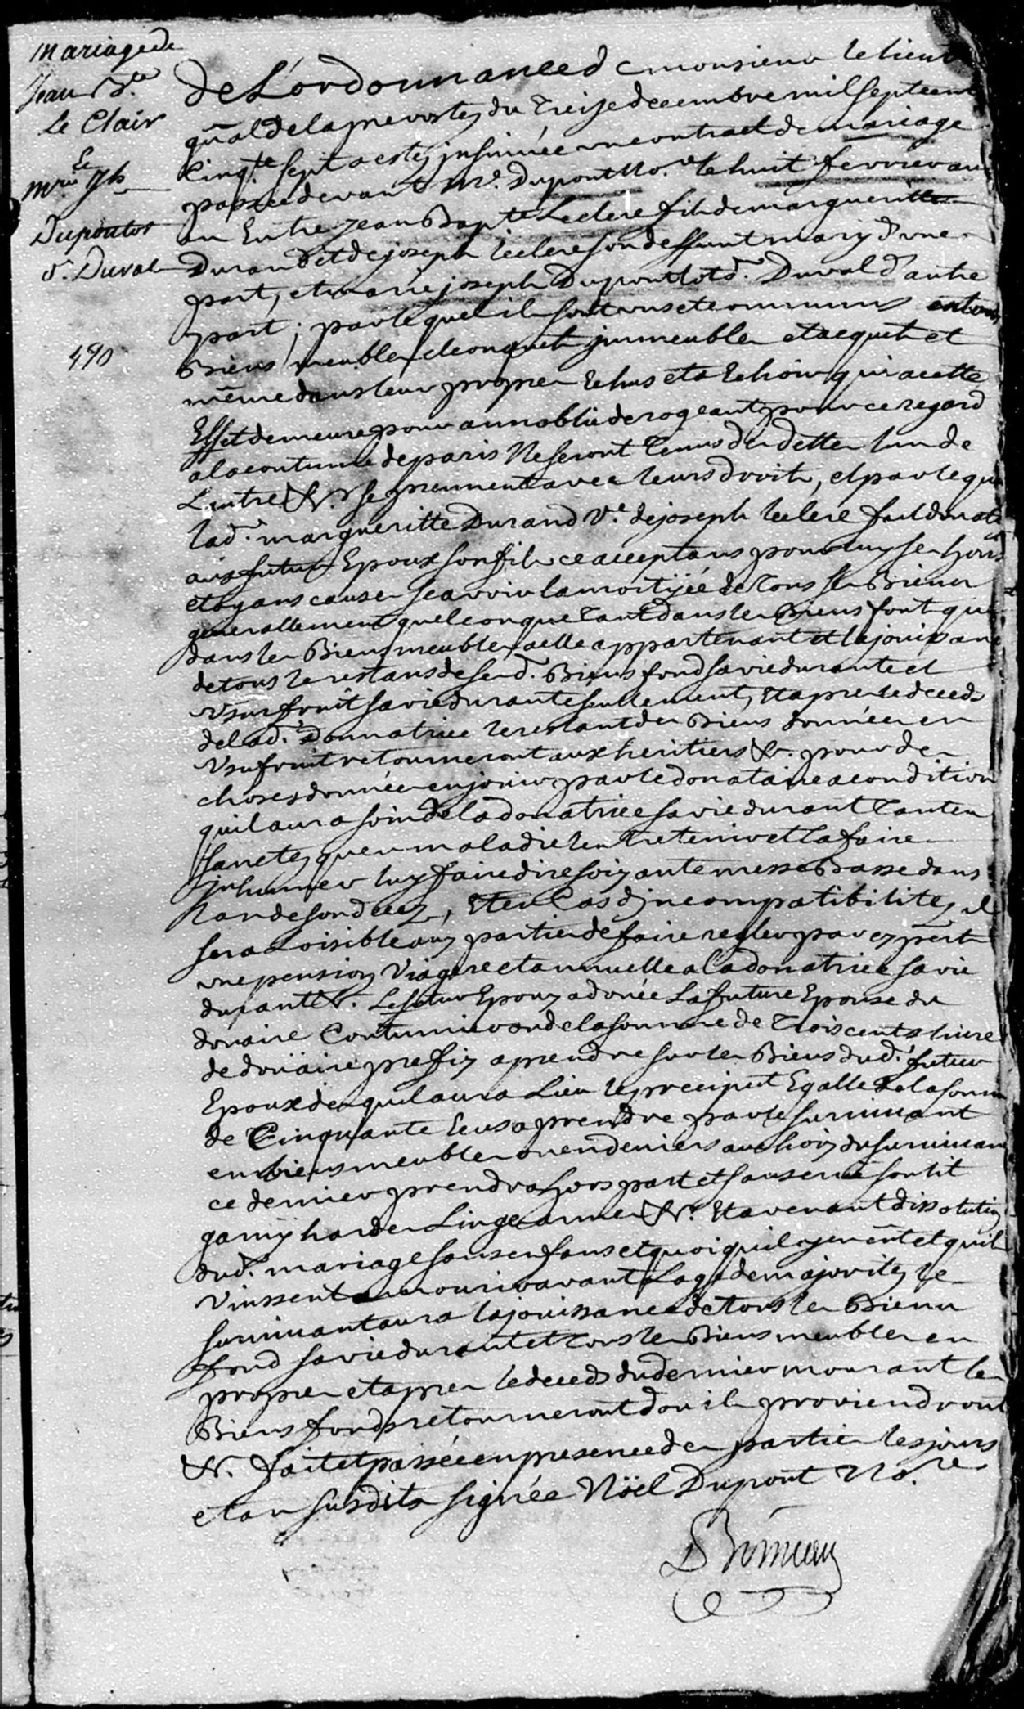 Mariage de
Jean Bte
Le Clair
Et
Mrie Jph
Duponlot
dt Duval
490
De L'ordonnance de monsieur le lieut
gñal de la prevostez du Treize decembre mil sept cent
Cinqte sept a estez insinuée un contract de mariage
passée devant Mr. Dupont No.re le huit fevrier au
an Entre Jean Bapte Leclerc fils de margueritte
Durand et de joseph leclerc son deffunt mary d'une
part, et marie joseph Dupontlot dt. Duval d'autre
part; par lequel ils sont uns et communs en tous
Biens meubles conquets jmmeubles et acquets et
même dans leur propres Echus et a Echoir qui a cette
Effet demeure pour annoblie derogeant pour ce regard
a la coutume de paris Ne seront Tenus des dettes lun de
Lautre &r. se prennent avec leurs droits, et par le que
lad. margueritte Durand Ve. de joseph leclerc fait donat
aux futur Epoux son fils ce acceptans pour luy ses hoirs
et ayans cause scavoir la moityée de Tous ses Biens
generallement quelconque Tant dans les Biens font que
dans les Biens meubles a elle appartenant et la jouissance
de tous le restans de sesd. Biens fond sa vie durante et
Usufruit sa vie durante seullement, Et apres le deceds
de lad. Donnatrice le restant des Biens donnée en
Usufruit retourneront aux heritiers &r. pour des
choses donnée en jouir par le donataire a condition
quil aura soin de la donatrice sa vie durant Tant en
santez quen maladie lentretenir et la faire
Inhumer luy faire dire soixante messe Basse dans
Lan de son decez, Et en Cas d'jncompatibilitez il
sera Loisible aux partie de faire regler par expert
une pension Viagere et annuelle a la donatrice sa vie
durant &r. Le futur Epoux a donée La future Epouse du
douaire Coutumier ou de la somme de Trois cents livre
de doüaire prefix a prendre sur les Biens dud. futur
Epoux des quil aura Lieu le preciput Egalle de la somme
de Cinquante Ecus a prendre par le survivant
en biens meubles ou en deniers au choix du survivant
ce dernier prendra hors part et sans crüe son lit
garny hardes Linge arme &r. Et avenant dissolution
dud. mariage sans enfans et quoiquil y en ent et quil
Vinssent a mourir avant Lage de majoritez le
survivant aura la jouissance de tous les Biens
fond sa vie durant et tous les Biens meubles en
propres et apres le deceds du dernier mourant les
Biens fonds retourneront dou ils proviendront
&r. fait et passée en presence des parties les jours
et an susdits signée Nöel Dupont No.re